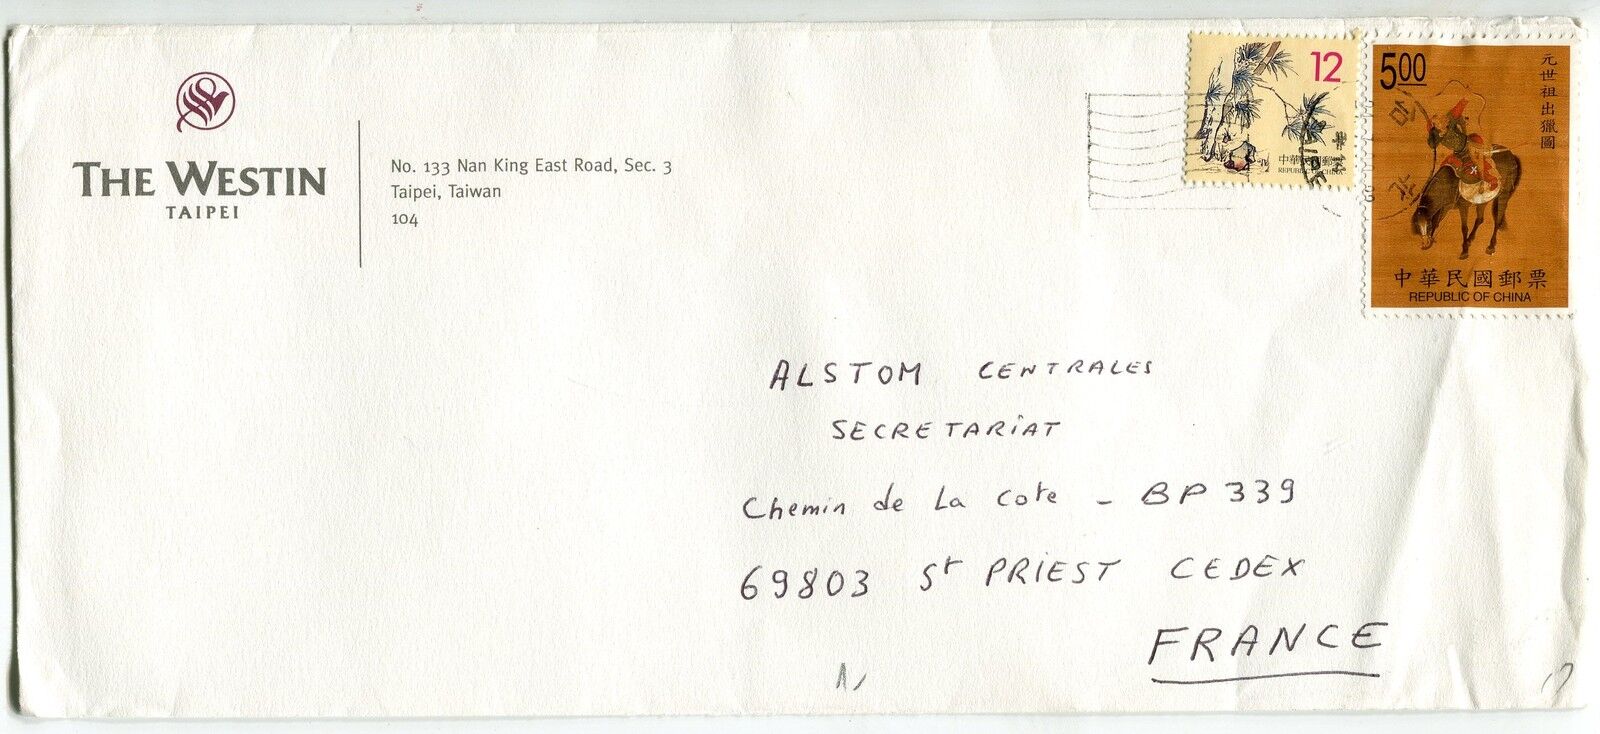 THE WESTIN
TAIPEI
No. 133 Nan King East Road, Sec. 3
Taipei, Taiwan
104
12
中華民國郵票
REPUBLIC OF CHINA
500
元世祖出獵圖
中華民國郵票
REPUBLIC OF CHINA
ALSTOM CENTRALES
SECRETARIAT
Chemin de La Cote - BP 339
69803 St PRIEST CEDEX
FRANCE